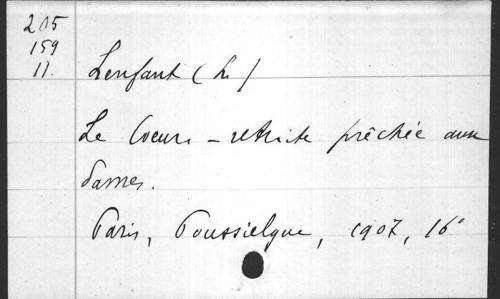 215
159
11.
Lenfant (L.)
Le Coeur - retraite prêchée aux
dames.
Paris, Poussielgue, 1907, 16°